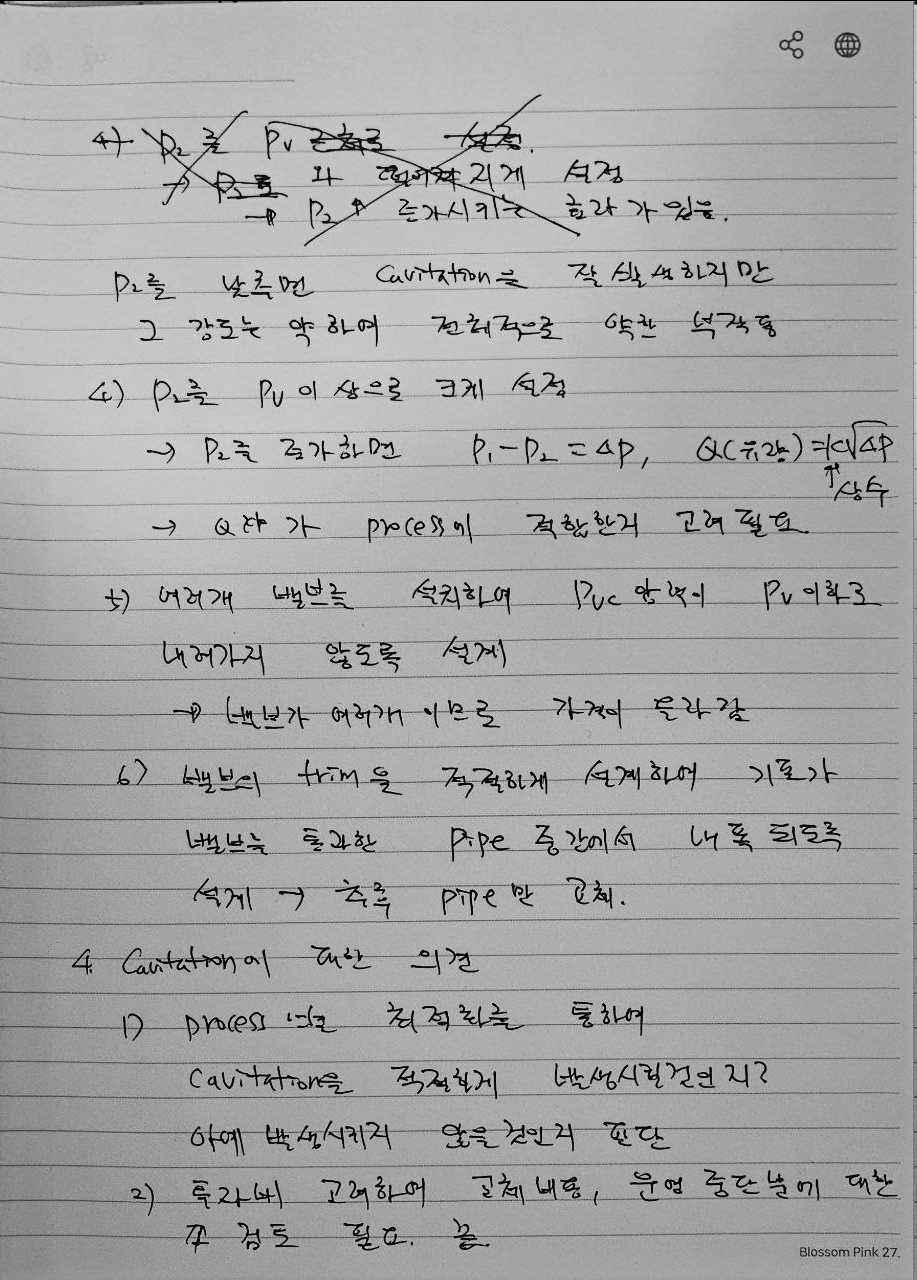 4) P₂를 Pv 근처로 설정.
→ P₂를 와 떨어지게 설정
→ P₂↑ 증가시키는 효과가 있음.
P₂를 낮추면 Cavitation을 잘 발생하지만
그 강도는 약하여 전체적으로 약한 부작용
4) P₂를 Pv 이상으로 크게 설정
→ P₂를 증가하면 P₁-P₂=ΔP, Q(유량)=K√ΔP
↑상수
→ Q가 process에 적합한지 고려 필요
5) 여러개 밸브를 설치하여 Pvc 압력이 Pv이하로
내려가지 않도록 설계
→ 밸브가 여러개 이므로 가격이 올라감
6) 밸브의 trim을 적절하게 설계하여 기포가
밸브를 통과한 pipe 중간에서 내폭 되도록
설계 → 추후 pipe만 교체.
4. Cavitation에 대한 의견
1) process 별로 최적화를 통하여
Cavitation을 적절하게 발생시킬것인지?
아예 발생시키지 않을것인지 판단
2) 투자비 고려하여 교체비용, 운영 중단분에 대한
검토 필요. 끝.
Blossom Pink 27.